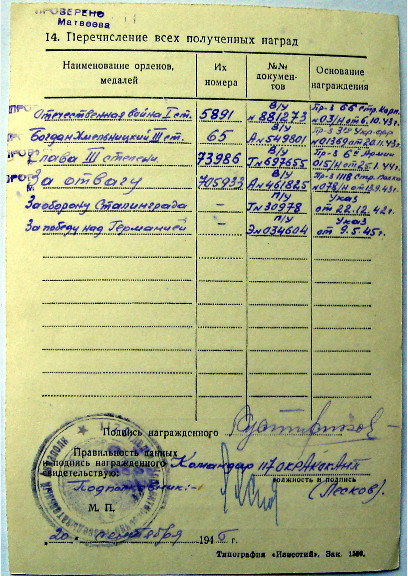 ПРОВЕРЕНО
Матвеева
14. Перечисление всех полученных наград
Наименование орденов, медалей
Их номера
№№ документов
Основание награждения
Отечественная война I ст. 5891 В/у № 881273 Пр-з 66 Стр. Корп. №03/н от 6.10.43г.
Богдан Хмельницкий III ст. 65 В/у А№549801 Пр-з 3го Укр. фр. №01369 от 20.11.43г
Слава III степени. 73986 В/у Г№697655 Пр-з 6й Армии 015/н от 25.1.44г.
За отвагу 705933 В/у А№461825 Пр-з 1118 Стр. Полка №078/н от 13.9.43г.
За оборону Сталинграда – П/у Г№30978 Указ от 22.12.42г.
За победу над Германией – П/у Э№034604 Указ от 9.5.45г.
Подпись награжденного
Правильность данных
и подпись награжденного
свидетельствую: Командир 117
Подполковник:-
должность и подпись
(Лесков).
М. П.
20 сентября 194 г.
Типография «Известий». Зак. 1500.